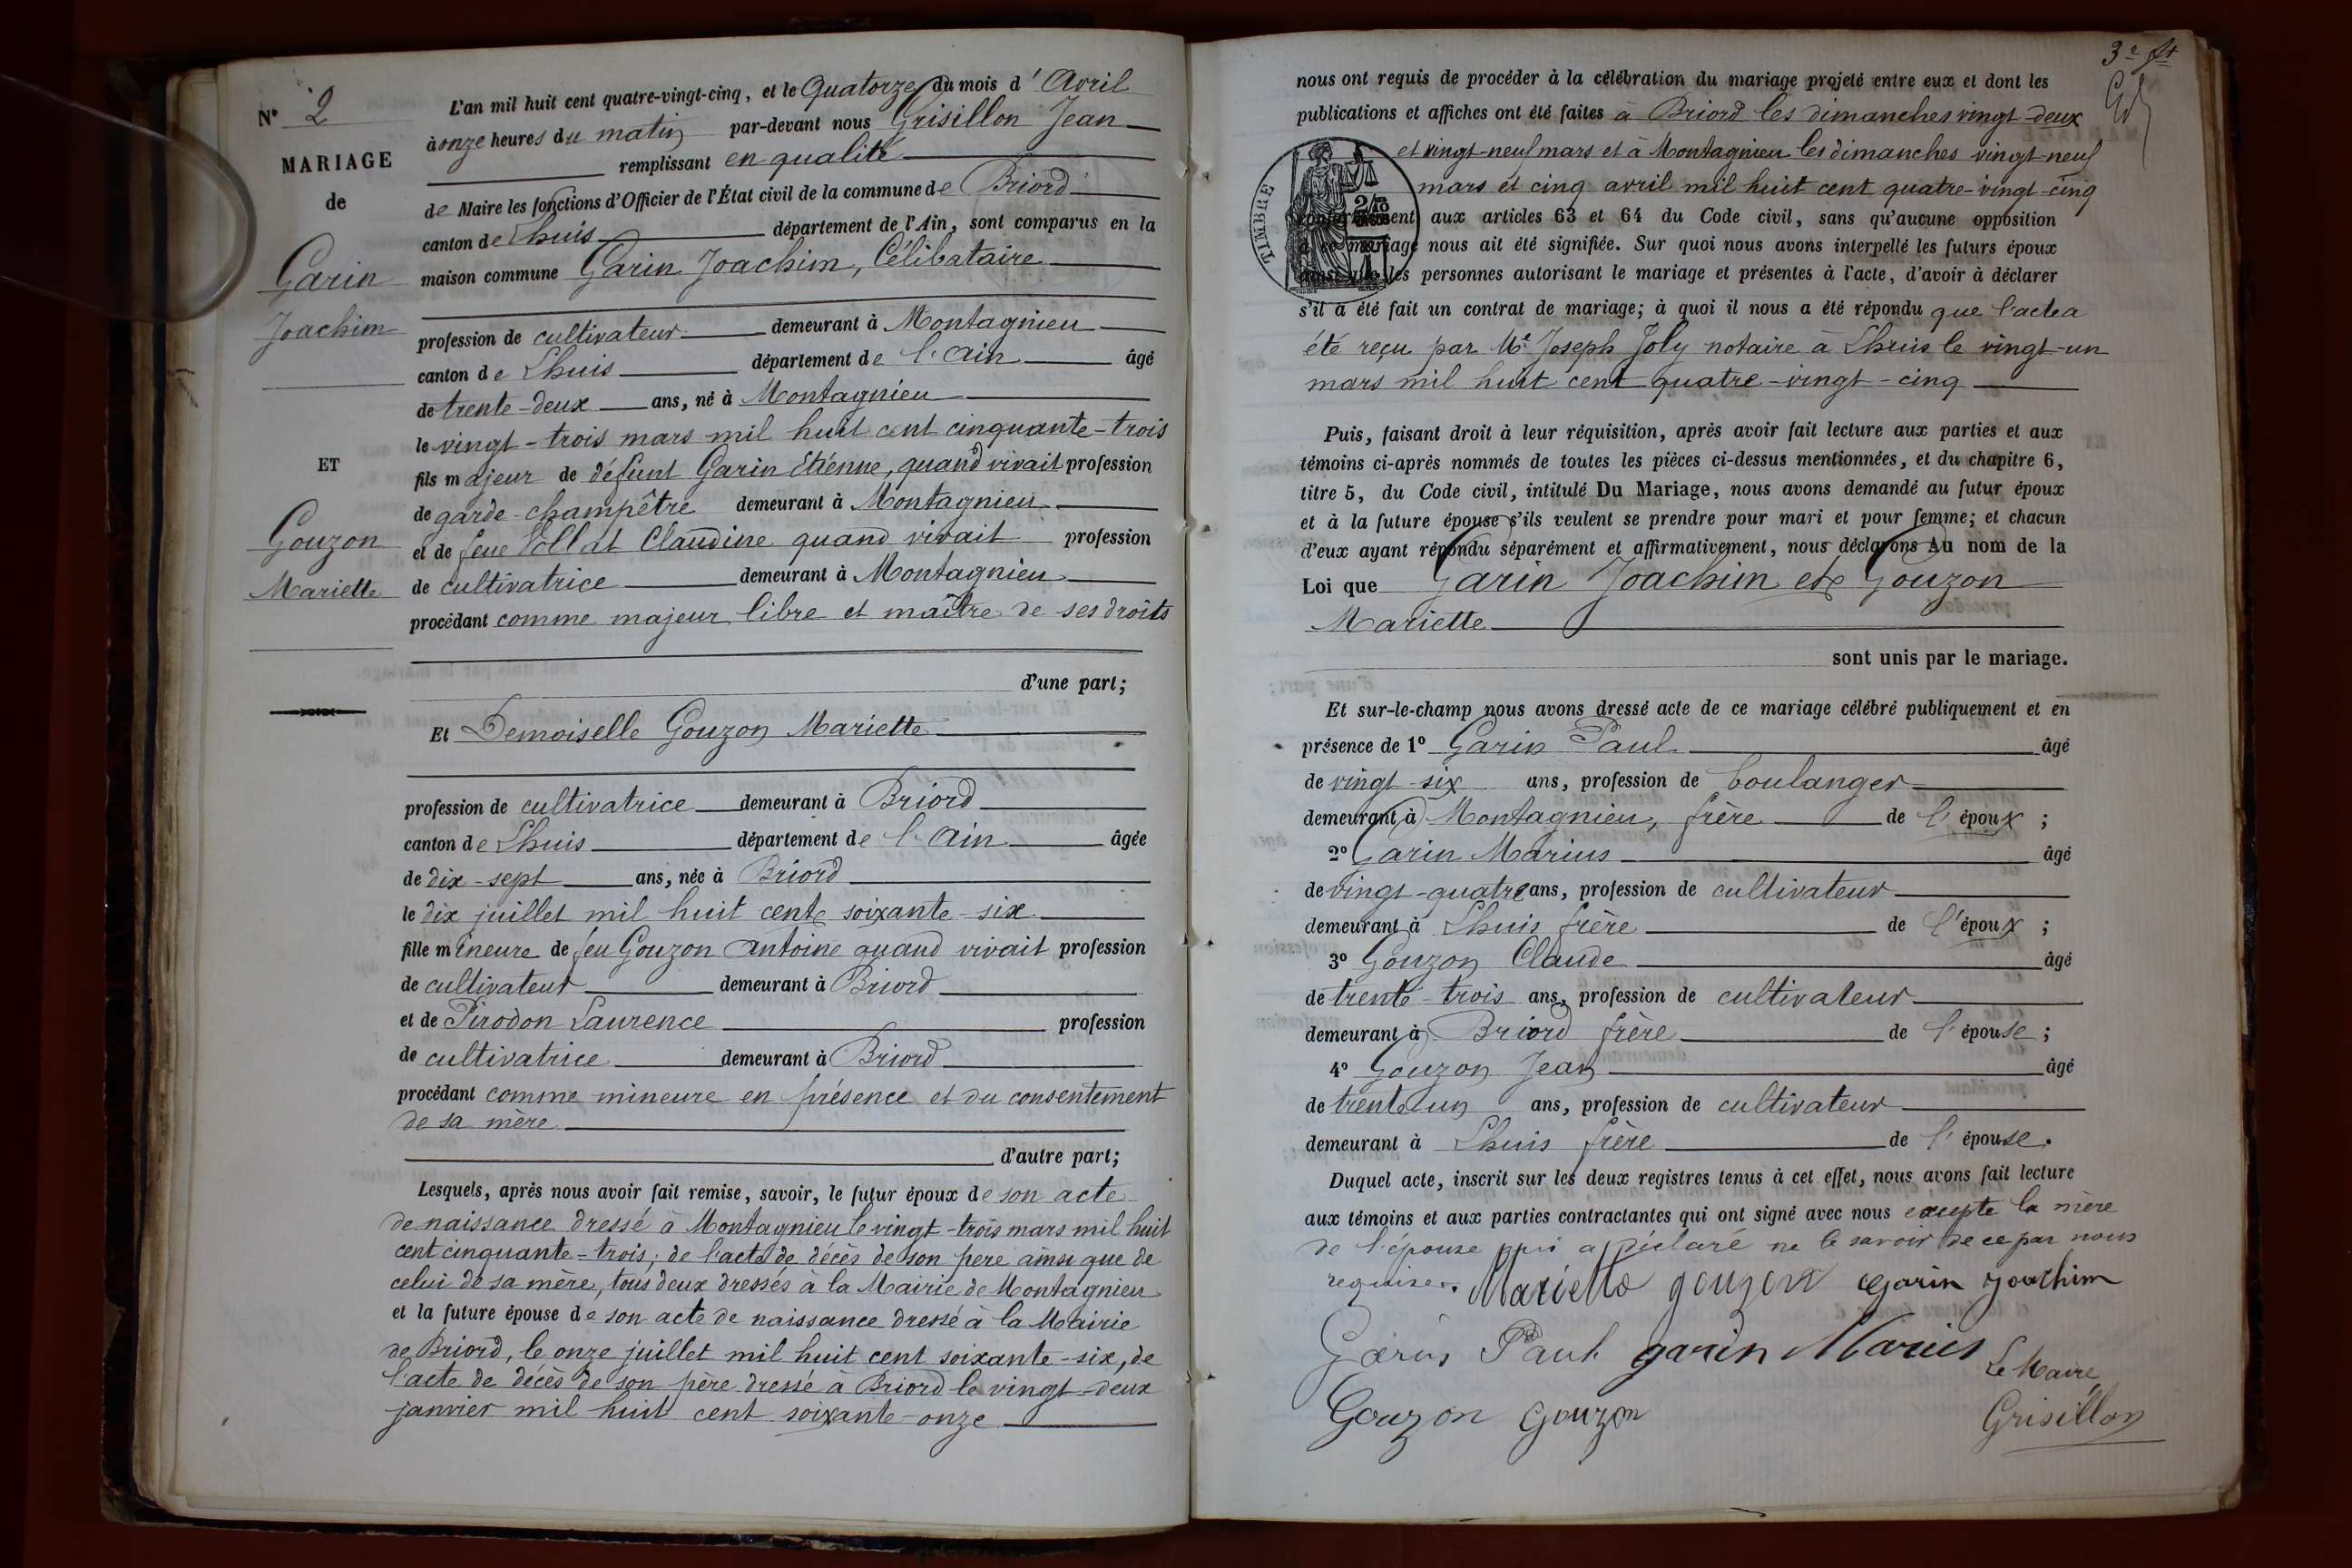 N° 2
MARIAGE
de
Garin
Joachim
ET
Gouzon
Mariette
L'an mil huit cent quatre-vingt-cinq, et le Quatorze du mois d'Avril
à onze heures du matin par-devant nous Grisillon Jean
remplissant en qualité
de Maire les fonctions d'Officier de l'État civil de la commune de Briord
canton de Lhuis département de l'Ain, sont comparus en la
maison commune Garin Joachim, Célibataire
profession de cultivateur demeurant à Montagnieu
canton de Lhuis département de l'Ain âgé
de trente-deux ans, né à Montagnieu
le vingt-trois mars mil huit cent cinquante-trois
fils majeur de défunt Garin Etiénne, quand vivait profession
de garde-champêtre demeurant à Montagnieu
et de feue Vollat Claudine quand vivait profession
de cultivatrice demeurant à Montagnieu
procédant comme majeur libre et maître de ses droits
d'une part;
Et Demoiselle Gouzon Mariette
profession de cultivatrice demeurant à Briord
canton de Lhuis département de l'Ain âgée
de dix-sept ans, née à Briord
le dix juillet mil huit cent soixante-six
fille mineure de feu Gouzon Antoine quand vivait profession
de cultivateur demeurant à Briord
et de Pirodon Laurence profession
de cultivatrice demeurant à Briord
procédant comme mineure en présence et du consentement
de sa mère
d'autre part;
Lesquels, après nous avoir fait remise, savoir, le futur époux de son acte
de naissance dressé à Montagnieu le vingt-trois mars mil huit
cent cinquante-trois; de l'acte de décès de son pere ainsi que de
celui de sa mère, tous deux dressés à la Mairie de Montagnieu
et la future épouse de son acte de naissance dressé à la Mairie
de Briord, le onze juillet mil huit cent soixante-six, de
l'acte de décès de son père dressé à Briord le vingt-deux
janvier mil huit cent soixante-onze
3e ft
nous ont requis de procéder à la célébration du mariage projeté entre eux et dont les
publications et affiches ont été faites à Briord les dimanches vingt-deux
et vingt-neuf mars et à Montagnieu les dimanches vingt-neuf
mars et cinq avril mil huit cent quatre-vingt-cinq
TIMBRE
conformément aux articles 63 et 64 du Code civil, sans qu'aucune opposition
à ce mariage nous ait été signifiée. Sur quoi nous avons interpellé les futurs époux
ainsi que les personnes autorisant le mariage et présentes à l'acte, d'avoir à déclarer
s'il a été fait un contrat de mariage; à quoi il nous a été répondu que l'acte a
été reçu par Me Joseph Joly notaire à Lhuis le vingt-un
mars mil huit cent quatre-vingt-cinq
Puis, faisant droit à leur réquisition, après avoir fait lecture aux parties et aux
témoins ci-après nommés de toutes les pièces ci-dessus mentionnées, et du chapitre 6,
titre 5, du Code civil, intitulé Du Mariage, nous avons demandé au futur époux
et à la future épouse s'ils veulent se prendre pour mari et pour femme; et chacun
d'eux ayant répondu séparément et affirmativement, nous déclarons Au nom de la
Loi que Garin Joachim et Gouzon
Mariette
sont unis par le mariage.
Et sur-le-champ nous avons dressé acte de ce mariage célébré publiquement et en
présence de 1° Garin Paul âgé
de vingt-six ans, profession de boulanger
demeurant à Montagnieu, frère de l'époux;
2° Garin Marius âgé
de vingt-quatre ans, profession de cultivateur
demeurant à Lhuis frère de l'époux;
3° Gouzon Claude âgé
de trente-trois ans, profession de cultivateur
demeurant à Briord frère de l'épouse;
4° Gouzon Jean âgé
de trente un ans, profession de cultivateur
demeurant à Lhuis frère de l'épouse.
Duquel acte, inscrit sur les deux registres tenus à cet effet, nous avons fait lecture
aux témoins et aux parties contractantes qui ont signé avec nous excepte la mère
de l'épouse qui a déclaré ne le savoir de ce par nous
requise. Mariette gouzon Garin Joachim
Garin Paul garin Marius
Le Maire
Gouzon Gouzon Grisillon